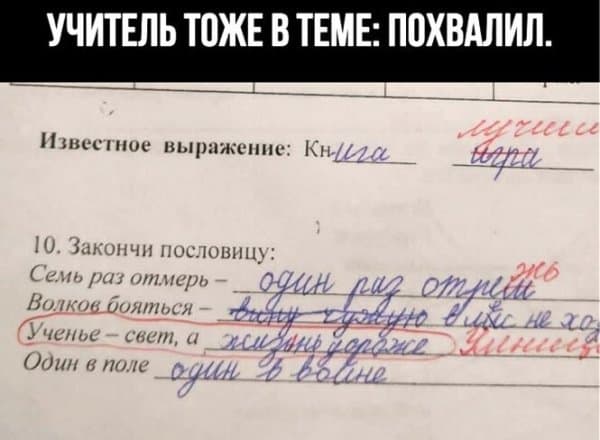 УЧИТЕЛЬ ТОЖЕ В ТЕМЕ: ПОХВАЛИЛ.
лучши
Известное выражение: Книга игра
10. Закончи пословицу:
жь
Семь раз отмерь – один раз отреж
Волков бояться – вину чужую в лес не хо
Ученье – свет, а жизнь дороже
Один в поле один в войне